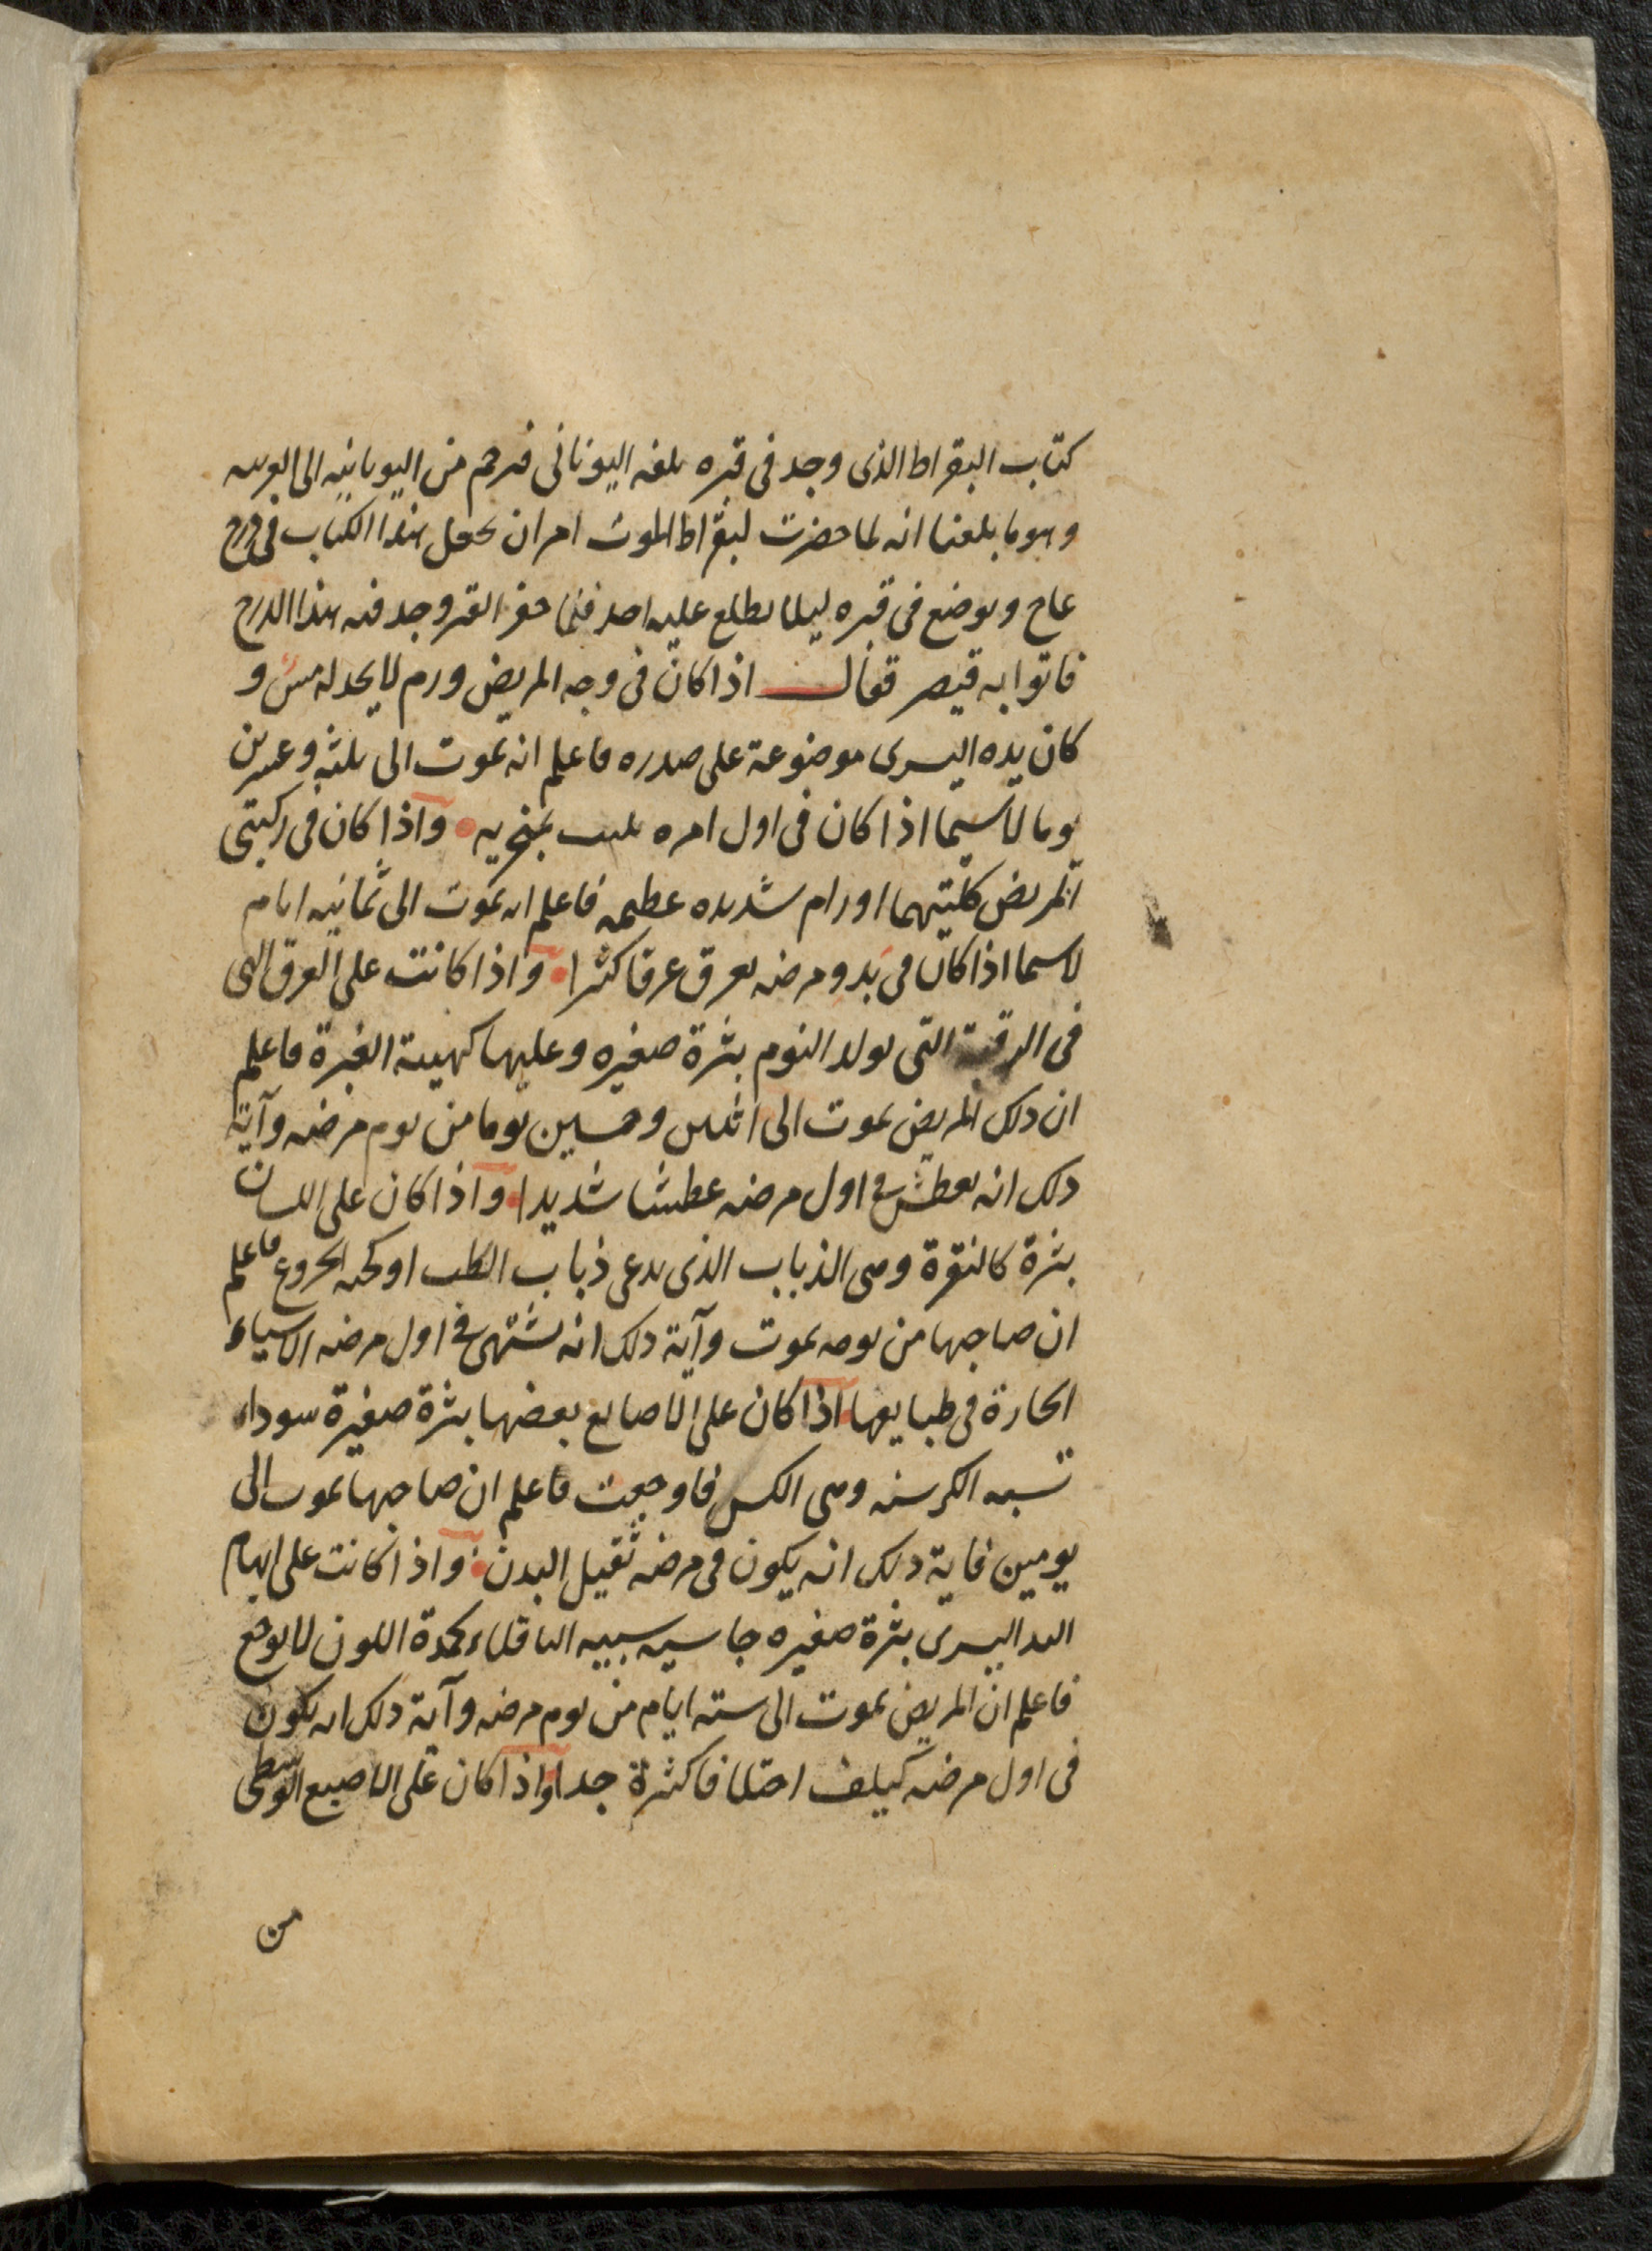 كتاب البقراط الذى وجد فى قبره بلغه اليونانى فترجم من اليونانيه الى العربيه
وهو ما بلغنا انه لما حضرت لبقراط الموت امر ان يجعل هذا الكتاب فى درج
عاج ويوضع فى قبره ليلا يطلع عليه احد فلما حفر القبر وجد فيه هذا الدرج
فاتوا به قيصر فقال اذا كان فى وجه المريض ورم لا يجد له مس و
كان يده اليسرى موضوعة على صدره فاعلم انه يموت الى ثلثه وعشرين
يوما لا سيما اذا كان فى اول امره بمنخريه واذا كان فى ركبتى
المريض كلتيهما اورام شديده عظيمه فاعلم انه يموت الى ثمانيه ايام
لا سيما اذا كان فى بدو مرضه يعرق عرقا كثيرا واذا كانت على العرق التى
فى الرقبة التى يولد النوم بثرة صغيره وعليها كهيىة الغبرة فاعلم
ان ذلك المريض يموت الى اثنين وخمسين يوما من يوم مرضه وآية
ذلك انه يعطش فى اول مرضه عطشا شديدا واذا كان على اللسان
بثرة كالنقرة وهى الذباب الذى يدعى ذباب الكلب او كحبه الخروع فاعلم
ان صاحبها من يومه يموت وآية ذلك انه يشتهى فى اول مرضه الاشياء
الحارة فى طبايعها اذا كان على الاصابع بعضها بثرة صغيرة سوداء
تشبه الكرسنه وهى الكس فاوجعت فاعلم ان صاحبها يموت الى
يومين فاية ذلك انه يكون فى مرضه ثقيل البدن واذا كانت على ابهام
اليد اليسرى بثرة صغيره جاسيه شبيه الباقلاء كمدة اللون لا يوجع
فاعلم ان المريض يموت الى سته ايام من يوم مرضه وآية ذلك انه يكون
فى اول مرضه كيلف اختلافا كثرة جدا واذا كان على الاصبع الوسطى
من